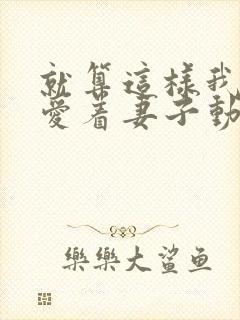 就算這樣我
愛着妻子動
樂樂大鯊鱼